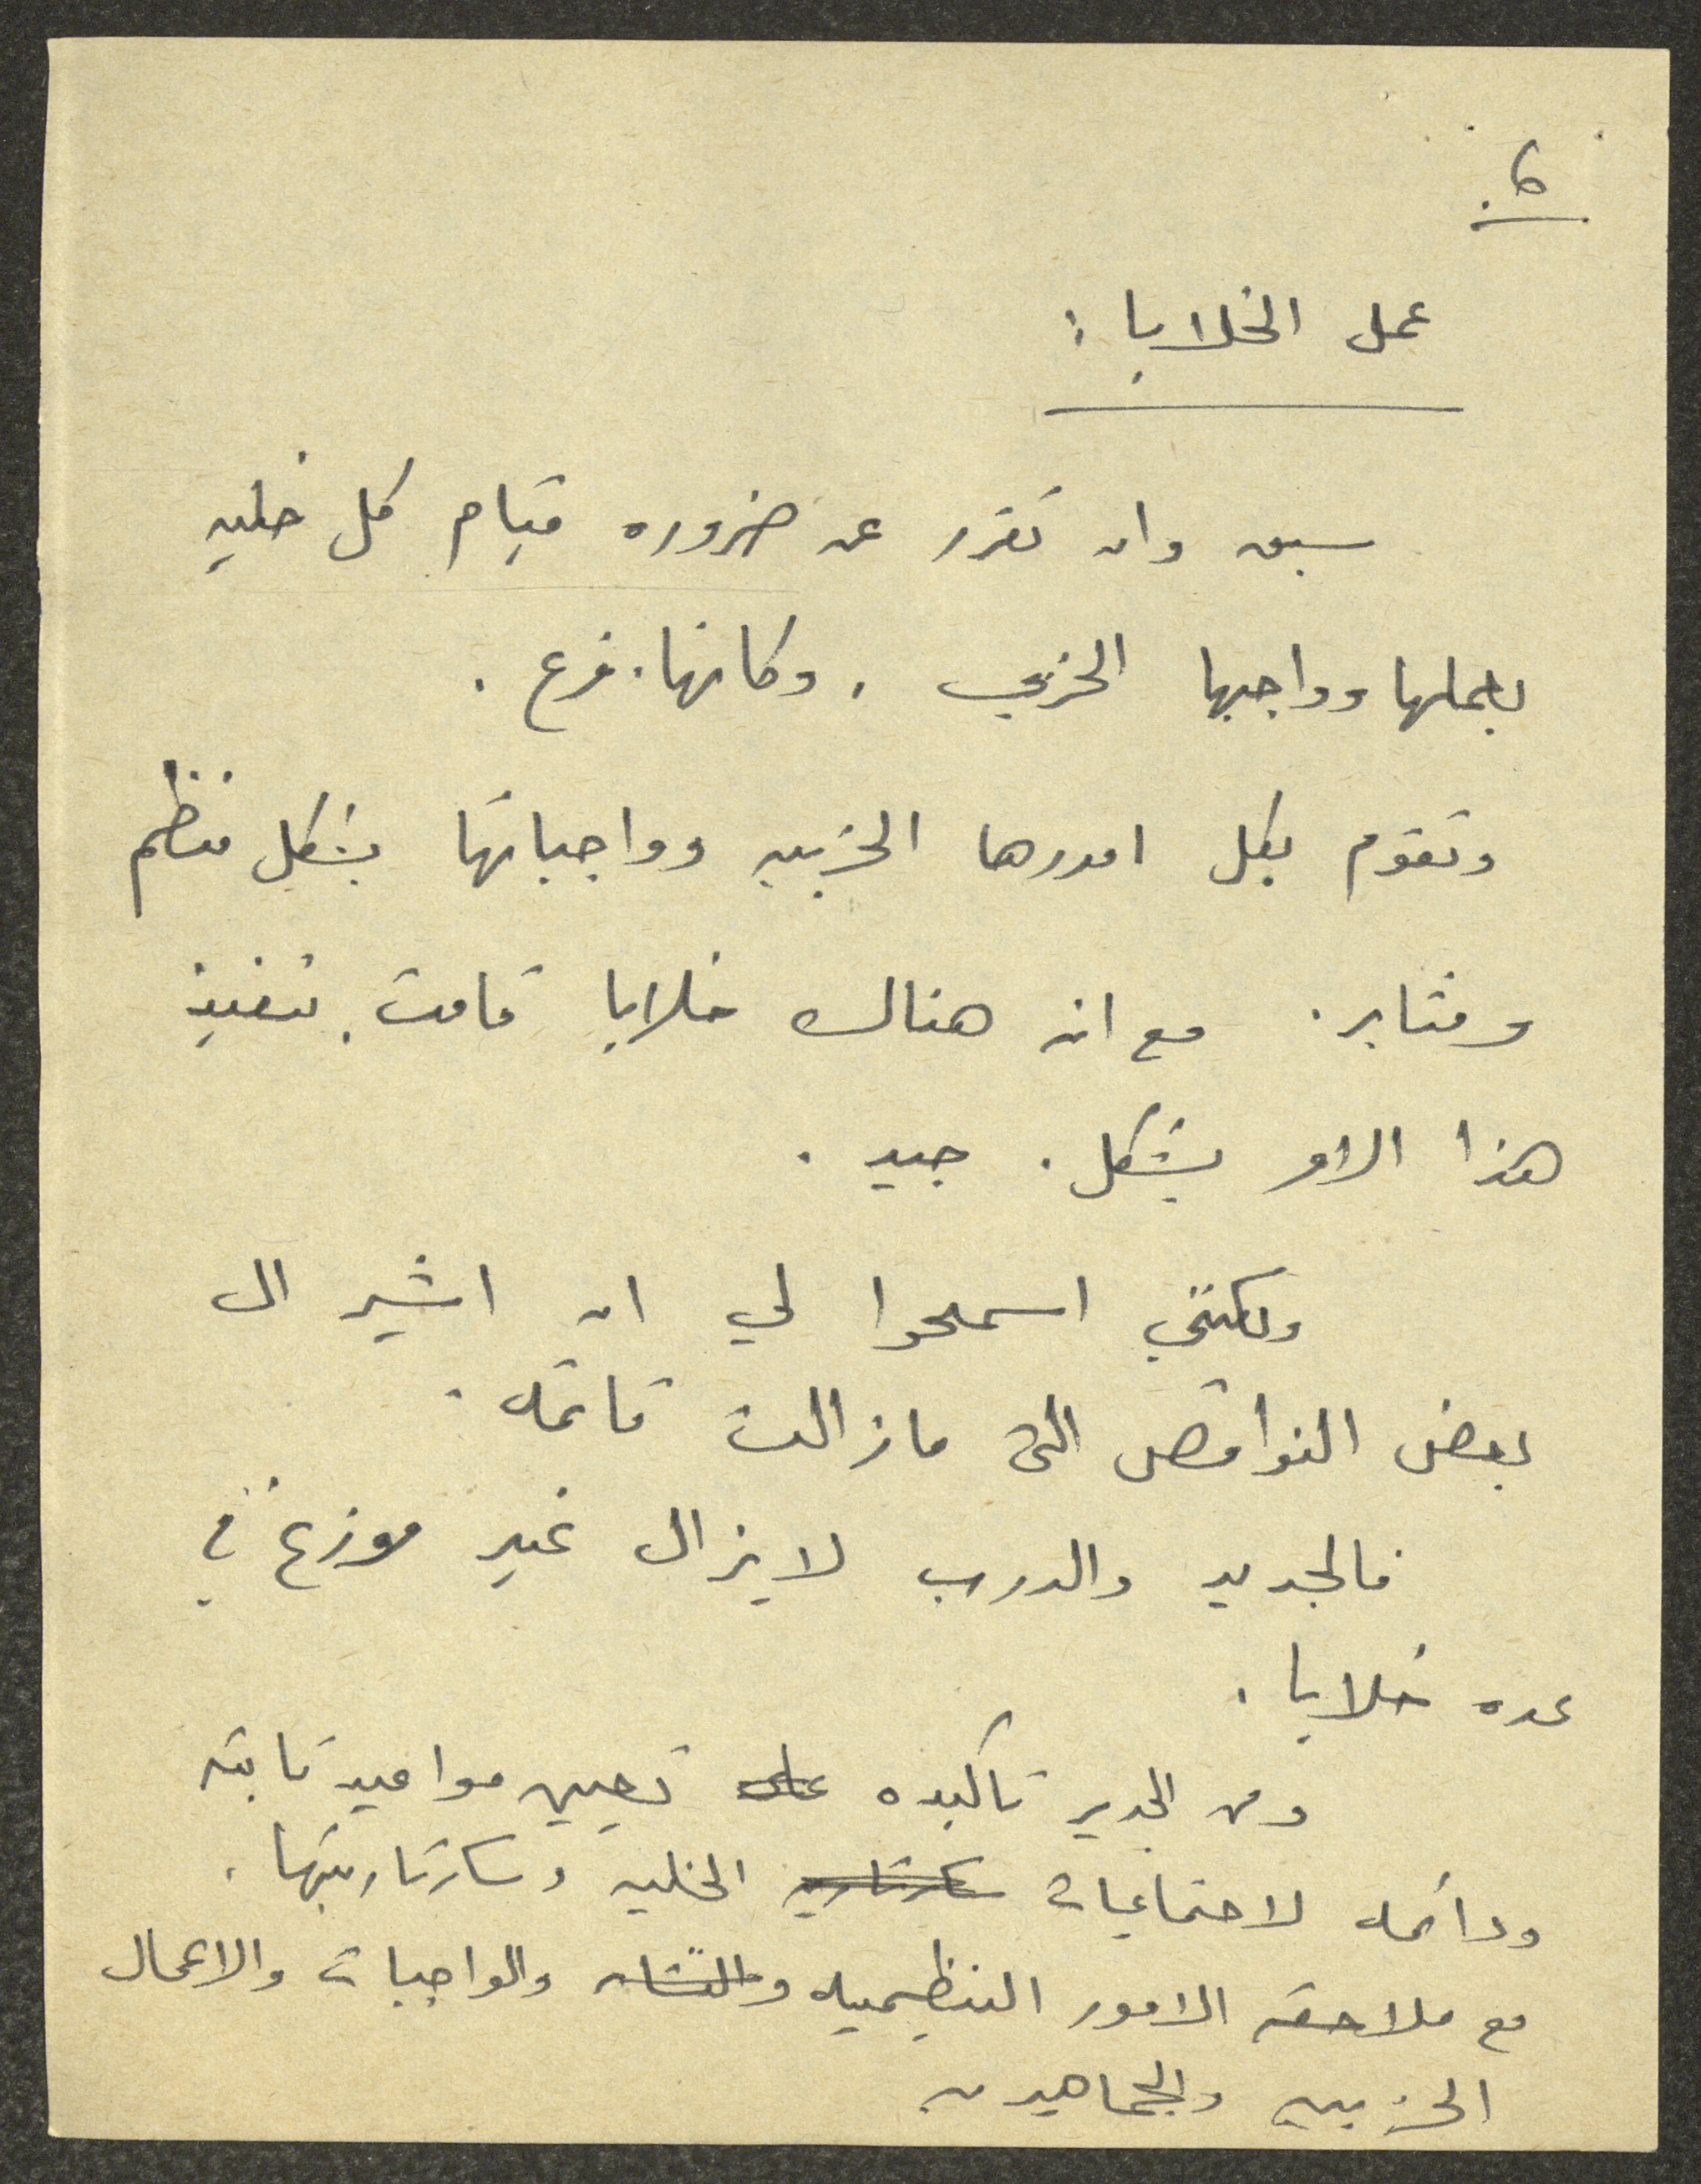 6.
عمل الخلايا :
سبق وان تقرر عن ضروره قيام كل خليه
بعملها وواجبها الحزبي ، وكانها فرع .
وتقوم بكل امورها الحزبيه وواجباتها بشكل منظم
ومثابر . مع ان هناك خلايا قامت بتنفيذ
هذا الامر بشكل جيد .
ولكنني اسمحوا لي ان اشير الى
بعض النواقص التي مازالت قائمه .
فالجديد والدرب لايزال غير موزع في
عده خلايا .
ومن الجدير تاكيده على تعيين مواعيد ثابته
ودائمه لاجتماعيات سكرتاريه الخليه وسكرتاريتها .
مع ملاحقه الامور التنظيميه والواجبات والاعمال
الحزبيه والجماهيريه